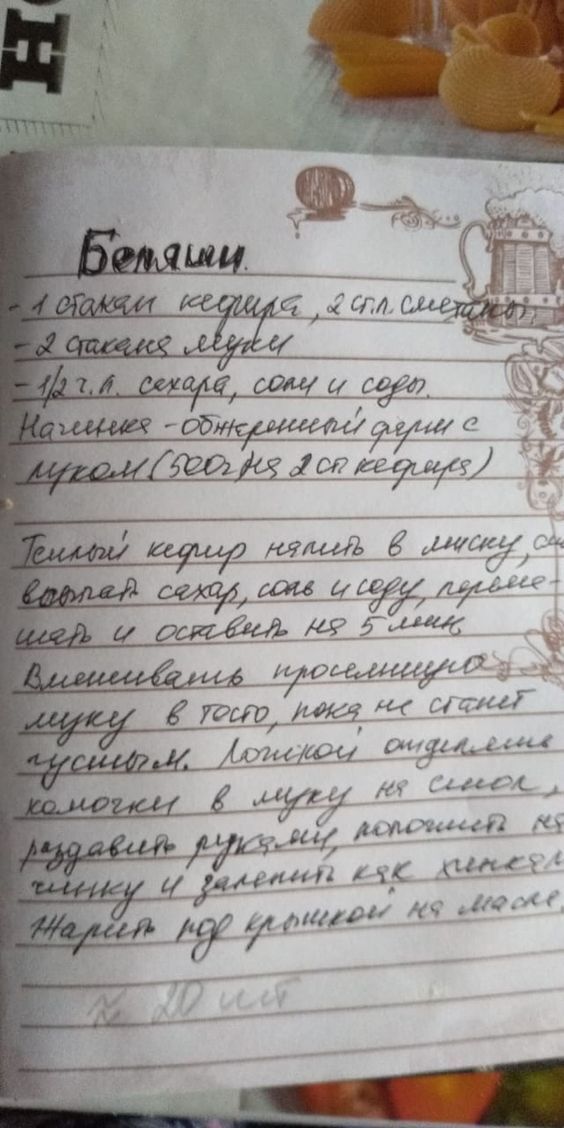 НО
Беляши.
- 1 стакан кефира, 2 ст.л. сметаны,
- 2 стакана муки
- 1/2 ч.л. сахара, соли и соды.
Начинка - обжаренный фарш с
луком (500г на 2 ст кефира)
Теплый кефир налить в миску,
всыпать сахар, соль и соду, переме-
шать и оставить на 5 мин.
Вмешивать просеянную
муку в тесто, пока не станет
густым. Ложкой отделять
комочки в муку на стол,
раздавить руками, положить на-
чинку и залепить как хинкал
Жарить под крышкой на масле.
≈ 20 шт